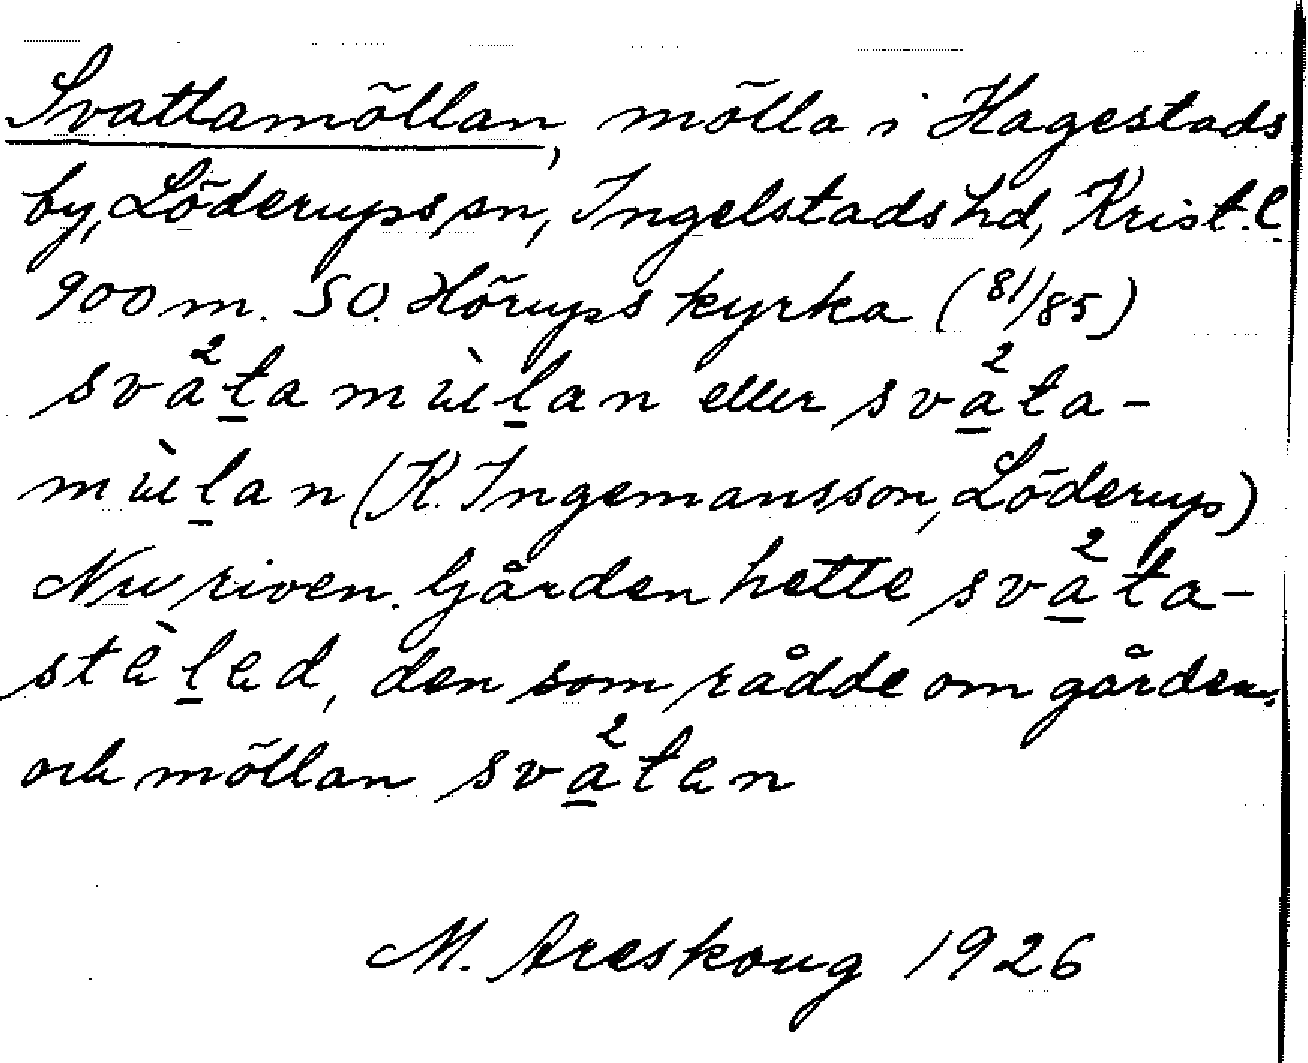 Svattamöllan, mölla i Hagestads
by, Löderups sn, Ingelstads hd, Krist. l.
900 m. SO. Hörups kyrka (81/85)
sva²ṯa mùḻan eller sva̱²ta-
mùḻan (K. Ingemansson, Löderup)
Nu riven. Gården hette sva̱²ta-
stàḻed, den som rådde om gården
och möllan sva̱²ten
M. Areskoug 1926